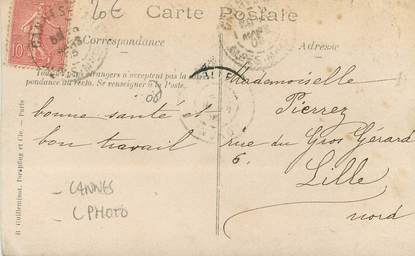 20€
Carte Postale
Correspondance
Adresse
Tous les pays étrangers n'acceptent pas la
correspondance au recto. Se renseigner à la Poste.
bonne santé et
bon travail
Mademoiselle
Pierrez
rue du Gros Gérard
6.
Lille
nord
CANNES
C PHOTO
H. Guilleminot, Bœspflug et Cie. - Paris
10